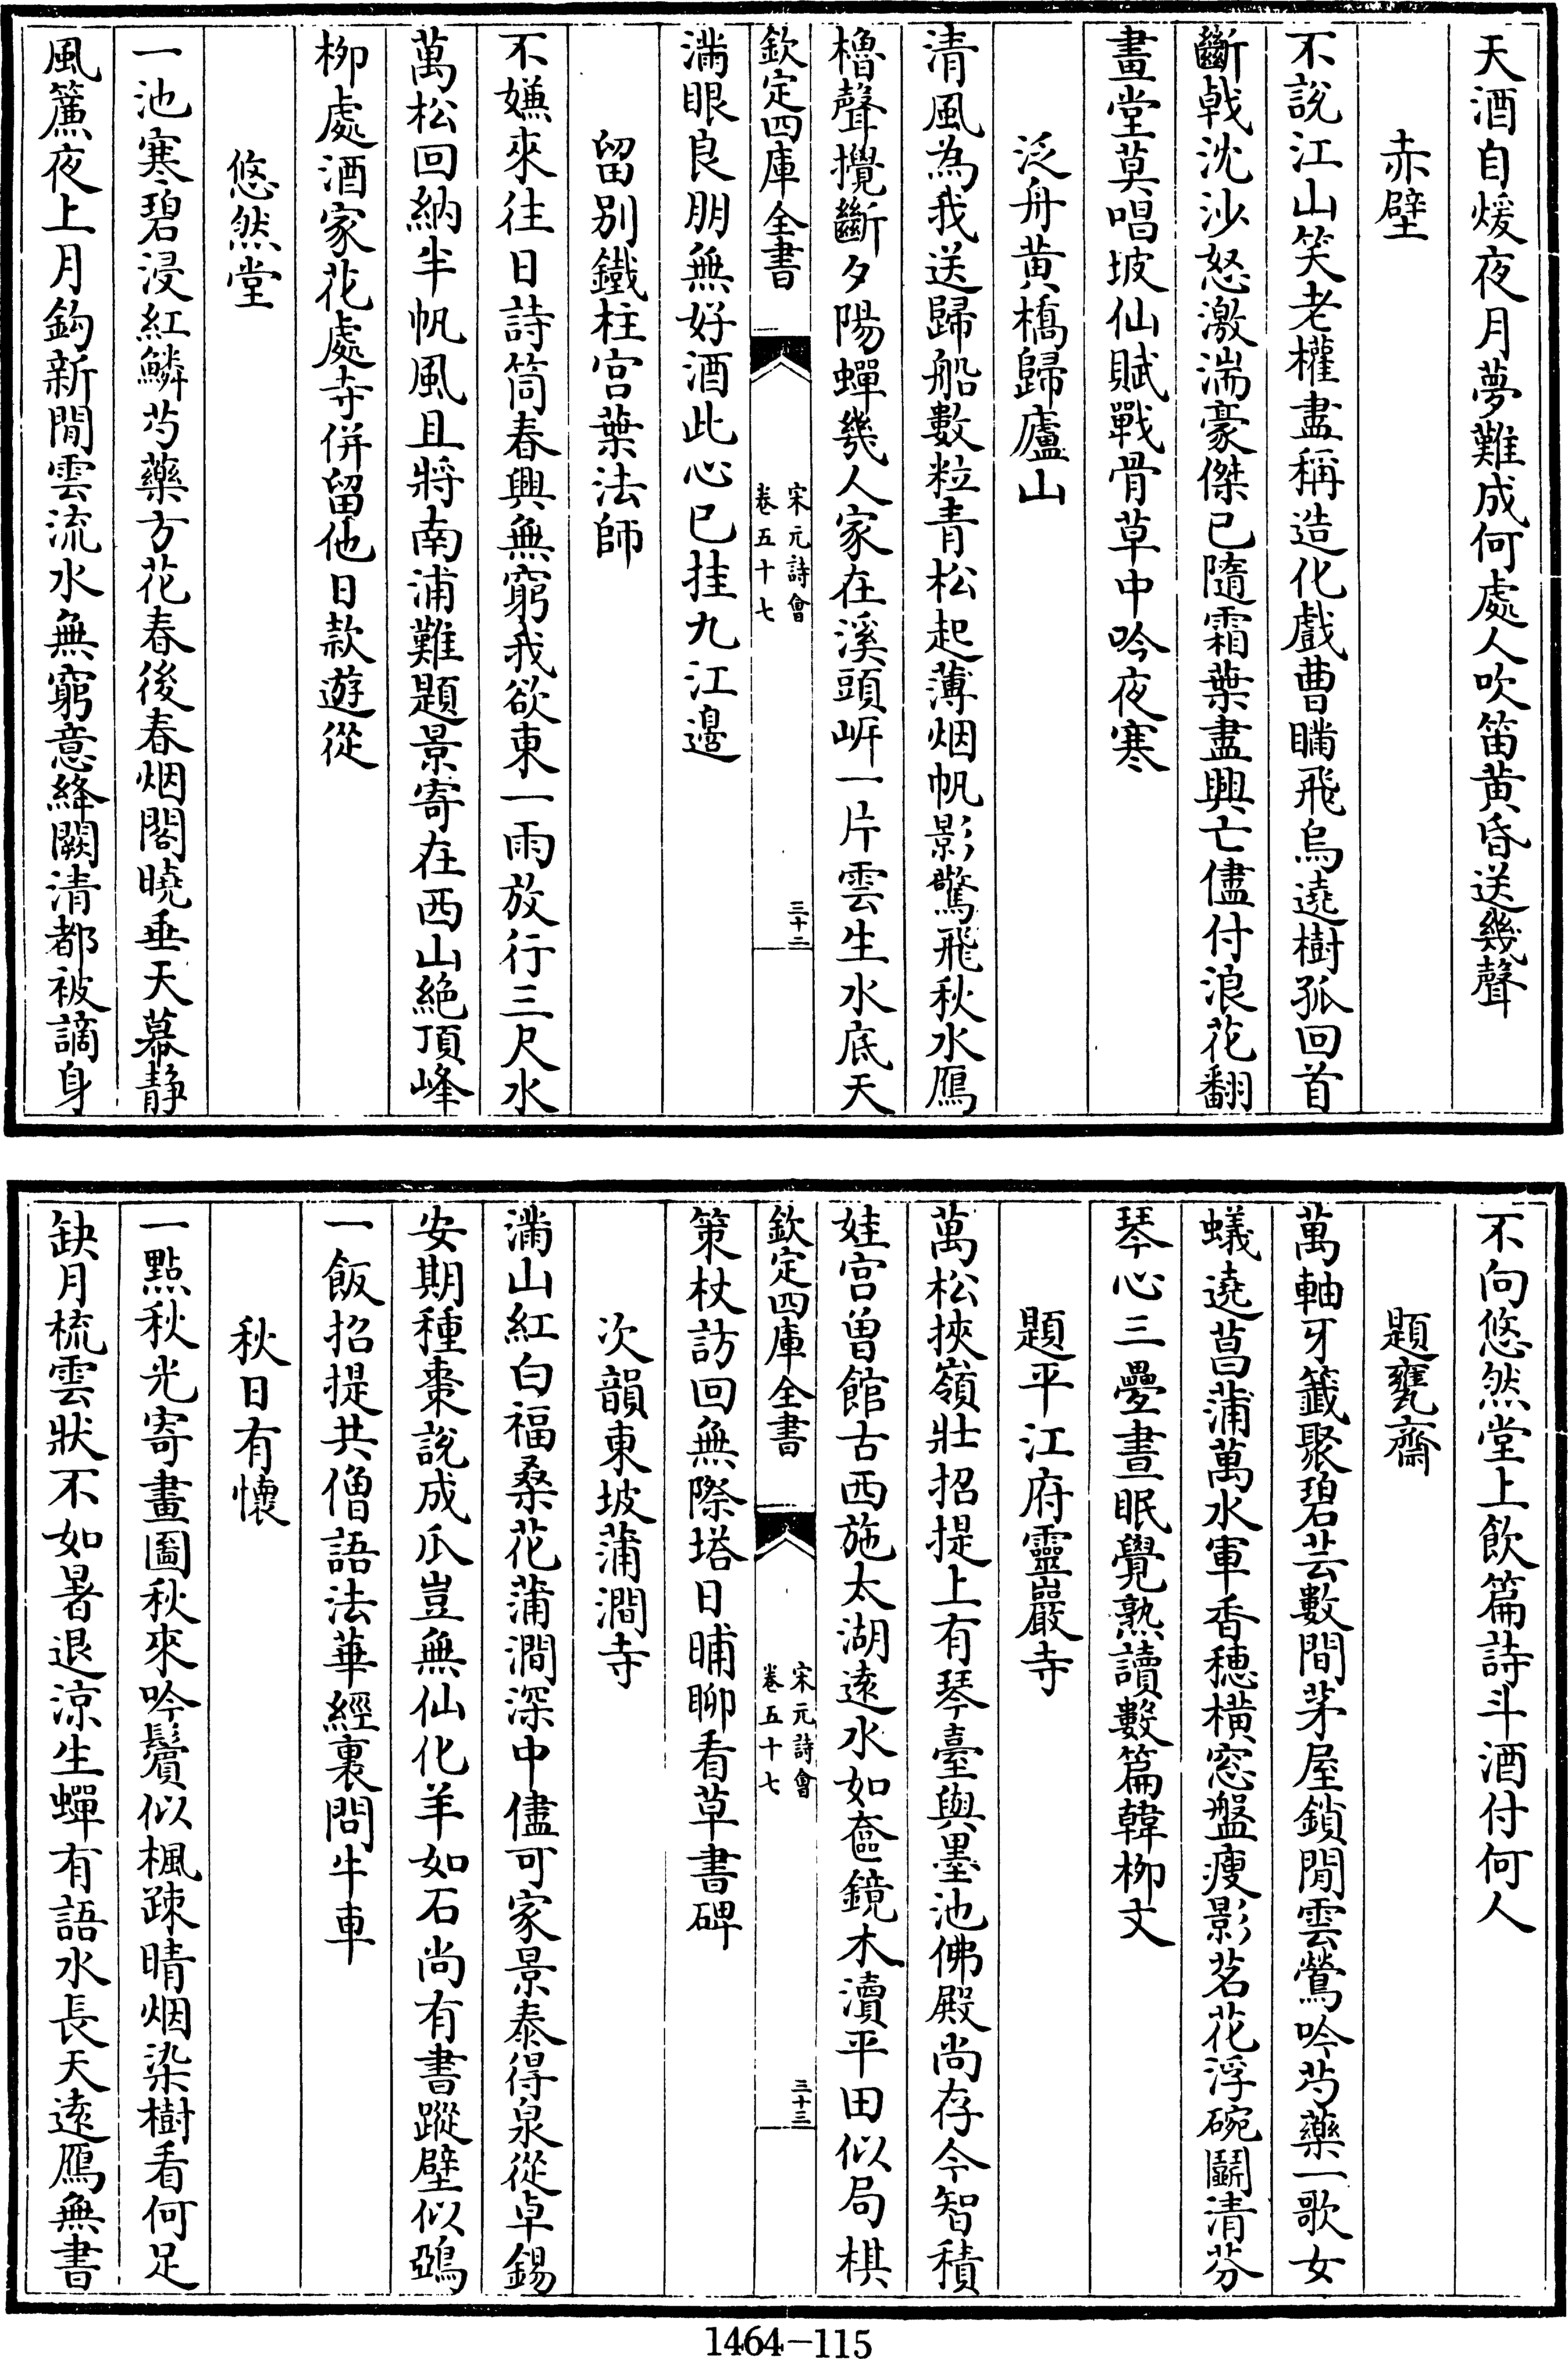 天酒自煖夜月夢難成何處人吹笛黄昏送幾聲
赤壁
不說江山笑老權盡稱造化戲曹瞞飛烏遶樹孤回首
斷戟沈沙怒激湍豪傑已隨霜葉盡興亡儘付浪花翻
畫堂莫唱坡仙賦戰骨草中吟夜寒
泛舟黄橋歸廬山
清風為我送歸船數粒青松起薄烟帆影驚飛秋水鴈
櫓聲攪斷夕陽蟬幾人家在溪頭岍一片雲生水底天
欽定四庫全書
宋元詩會
卷五十七
三十二
滿眼良朋無好酒此心已挂九江邊
留别鐵柱宫葉法師
不嫌來往日詩筒春興無窮我欲東一雨放行三尺水
萬松回納半帆風且將南浦難題景寄在西山絶頂峰
柳處酒家花處寺併留他日款遊從
悠然堂
一池寒碧浸紅鱗芍藥方花春後春烟閣曉垂天幕静
風簾夜上月鈎新閒雲流水無窮意絳闕清都被謫身
不向悠然堂上飲篇詩斗酒付何人
題甕齋
萬軸牙籤聚碧芸數間茅屋鎖閒雲鶯吟芍藥一歌女
蟻遶菖蒲萬水軍香穗横窓盤瘦影茗花浮碗鬬清芬
琴心三疊晝眠覺熟讀數篇韓柳文
題平江府靈巖寺
萬松挾嶺壯招提上有琴臺與墨池佛殿尚存今智積
娃宫曽館古西施太湖遠水如奩鏡木瀆平田似局棋
欽定四庫全書
宋元詩會
卷五十七
三十三
策杖訪回無際塔日晡聊看草書碑
次韻東坡蒲澗寺
滿山紅白福桑花蒲澗深中儘可家景泰得泉從卓錫
安期種棗說成瓜豈無仙化羊如石尚有書蹤壁似鵶
一飯招提共僧語法華經裏問牛車
秋日有懷
一點秋光寄畫圖秋來吟鬢似楓疎晴烟染樹看何足
缺月梳雲狀不如暑退凉生蟬有語水長天遠鴈無書
1464-115